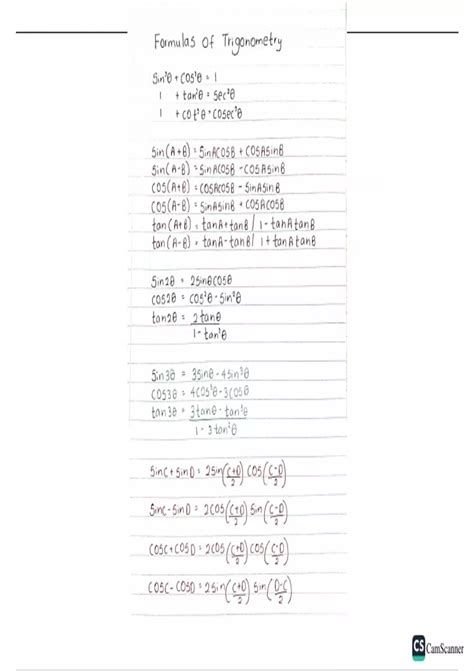 Formulas of Trigonometry
Sin²θ + cos²θ = 1
1 + tan²θ = Sec²θ
1 + cot²θ = cosec²θ
Sin(A+B) = SinACOSB + COSASinB
Sin(A-B) = SinACOSB - COSASinB
COS(A+B) = COSACOSB - SinASinB
COS(A-B) = SinASinB + COSACOSB
tan(A+B) = tanA + tanB / 1 - tanAtanB
tan(A-B) = tanA - tanB / 1 + tanAtanB
Sin2θ = 2SinθCOSθ
COS2θ = COS²θ - Sin²θ
tan2θ = 2tanθ
1 - tan²θ
Sin3θ = 3Sinθ - 4Sin³θ
COS3θ = 4COS³θ - 3COSθ
tan3θ = 3tanθ - tan³θ
1 - 3tan²θ
SinC + SinD = 2Sin(C+D/2) COS(C-D/2)
SinC - SinD = 2COS(C+D/2) Sin(C-D/2)
COSC + COSD = 2COS(C+D/2) COS(C-D/2)
COSC - COSD = 2Sin(C+D/2) Sin(D-C/2)
CS CamScanner